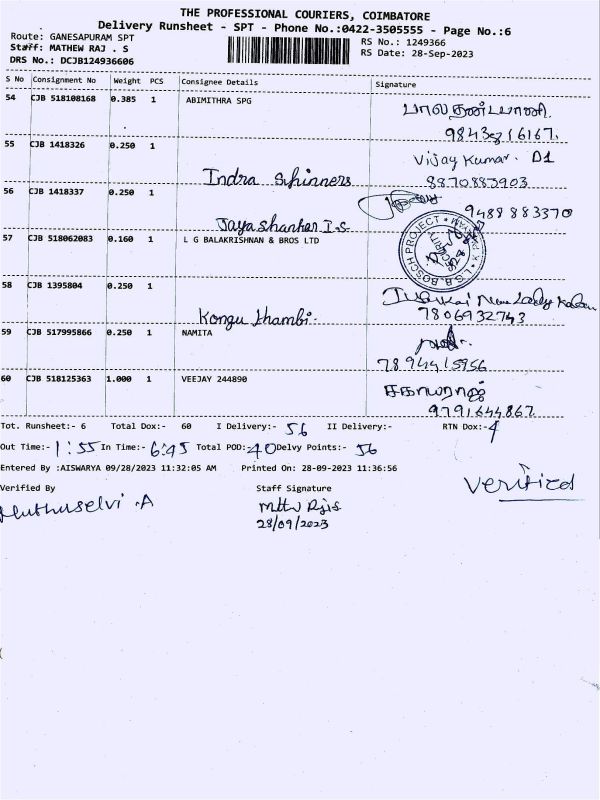 THE PROFESSIONAL COURIERS, COIMBATORE
Delivery Runsheet - SPT - Phone No.:0422-3505555 - Page No.:6
Route: GANESAPURAM SPT
RS No.: 1249366
Staff: MATHEW RAJ . S
RS Date: 28-Sep-2023
DRS No.: DCJB124936606
S No Consignment No Weight PCS Consignee Details Signature
54 CJB 518108168 0.385 1 ABIMITHRA SPG பாலதண்டபாணி.
9843816167.
55 CJB 1418326 0.250 1 Vijay Kumar. D1
Indra Spinners 8870883903
56 CJB 1418337 0.250 1
Jayashankar I.S 9488883370
57 CJB 518062083 0.160 1 L G BALAKRISHNAN & BROS LTD
L.G.B. BOSCH PROJECT
58 CJB 1395804 0.250 1
Kongu thambi. 7806932743
59 CJB 517995866 0.250 1 NAMITA
7894415956
60 CJB 518125363 1.000 1 VEEJAY 244890 சகாயராஜ்
9791644867.
Tot. Runsheet:- 6 Total Dox:- 60 I Delivery:- 56 II Delivery:- RTN Dox:- 4
Out Time:- 1:55 In Time:- 6:45 Total POD:- 40 Delvy Points:- 56
Entered By :AISWARYA 09/28/2023 11:32:05 AM Printed On: 28-09-2023 11:36:56
Verified By Staff Signature Verified
Muthuselvi .A
28/09/2023